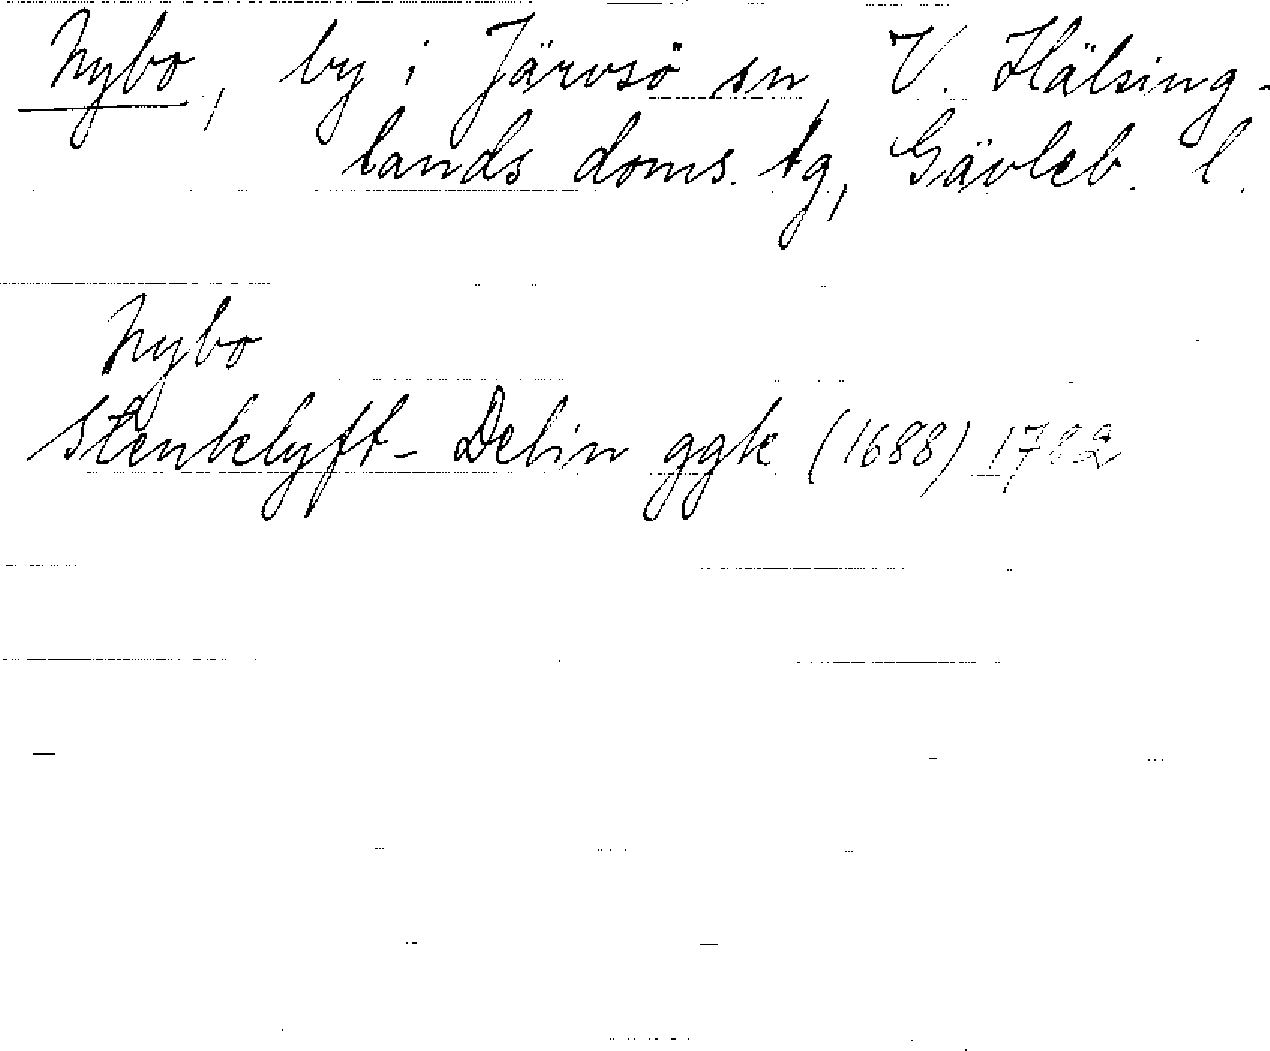 Nybo, by i Järvsö sn, V. Hälsing-
lands doms. tg, Gävleb. l.
Nybo
Stenklyft- Delin ggk (1688) 1782